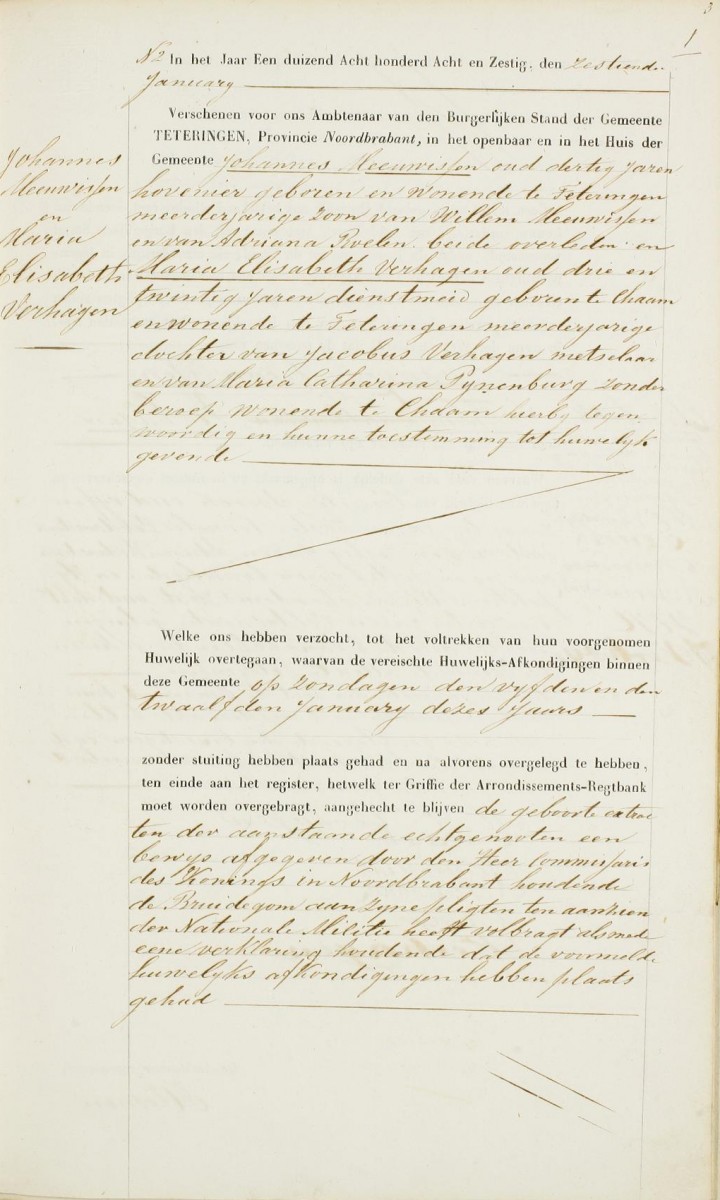 3
1
N2 In het Jaar Een duizend Acht honderd Acht en Zestig, den zestiende
January
Verschenen voor ons Ambtenaar van den Burgerlijken Stand der Gemeente
TETERINGEN, Provincie Noordbrabant, in het openbaar en in het Huis der
Gemeente Johannes Meeuwissen oud dertig Jaren
hovenier geboren en wonende te Teteringen
meerderjarige zoon van Willem Meeuwissen
en van Adriana Roelen beide overleden en
Maria Elisabeth Verhagen oud drie en
twintig Jaren dienstmeid geboren te Chaam
en wonende te Teteringen meerderjarige
dochter van Jacobus Verhagen metselaar
en van Maria Catharina Pynenburg zonder
beroep wonende te Chaam hierby tegen
woordig en hunne toestemming tot huwelyk
gevende
Johannes
Meeuwissen
en
Maria
Elisabeth
Verhagen
Welke ons hebben verzocht, tot het voltrekken van hun voorgenomen
Huwelijk overtegaan, waarvan de vereischte Huwelijks-Afkondigingen binnen
deze Gemeente op zondagen den vyfden en den
twaalfden January dezes Jaars
zonder stuiting hebben plaats gehad en na alvorens overgelegd te hebben,
ten einde aan het register, hetwelk ter Griffie der Arrondissements-Regtbank
moet worden overgebragt, aangehecht te blijven de geboorte extrac
ten der aanstaande echtgenooten een
bewys afgegeven door den Heer Commissaris
des Konings in Noordbrabant houdende
de Bruidegom aan zyne pligten ten aanzien
der Nationale Militie heeft volbragt alsmede
eene verklaring houdende dat de voormelde
huwelyks afkondigengen hebben plaats
gehad